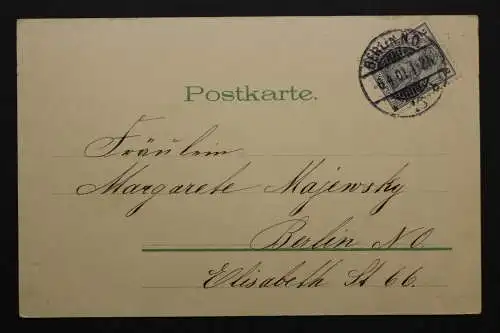 BERLIN N.O.
Postkarte.
Fräulein
Margarete Majewsky
Berlin NO
Elisabeth St 66.